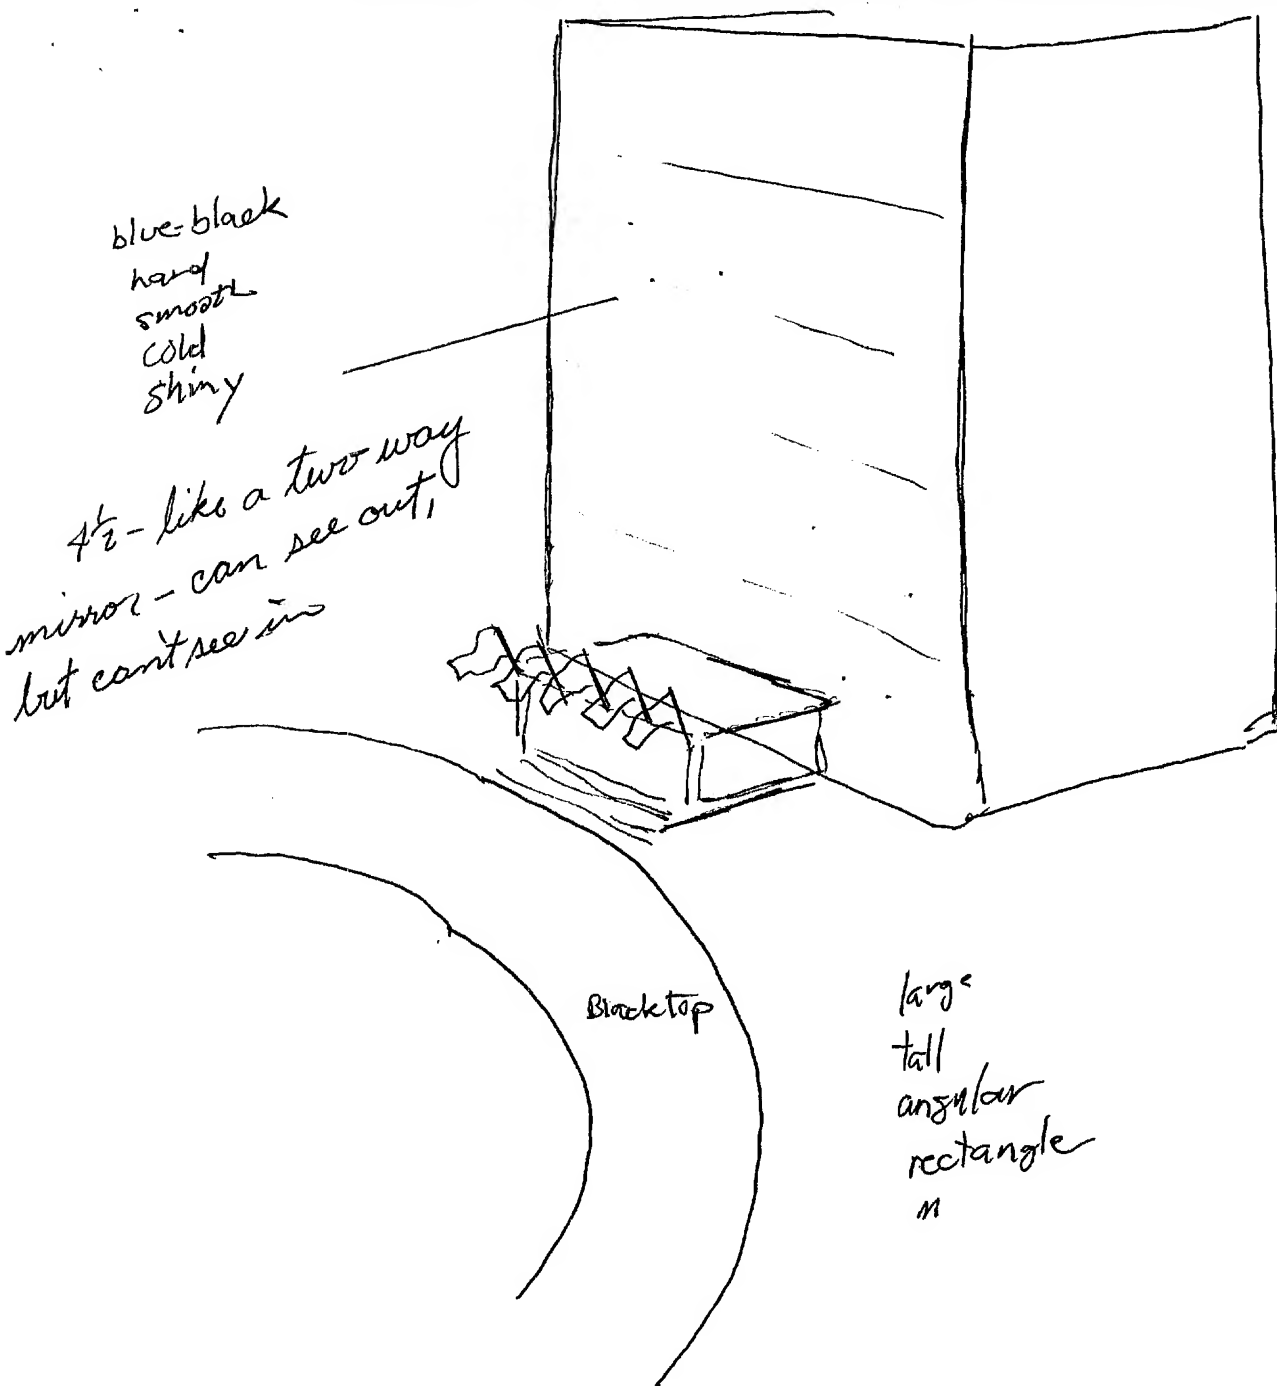 blue-black
hard
smooth
cold
shiny
4½ - like a two way
mirror - can see out,
but can't see in
Blacktop
large
tall
angular
rectangle